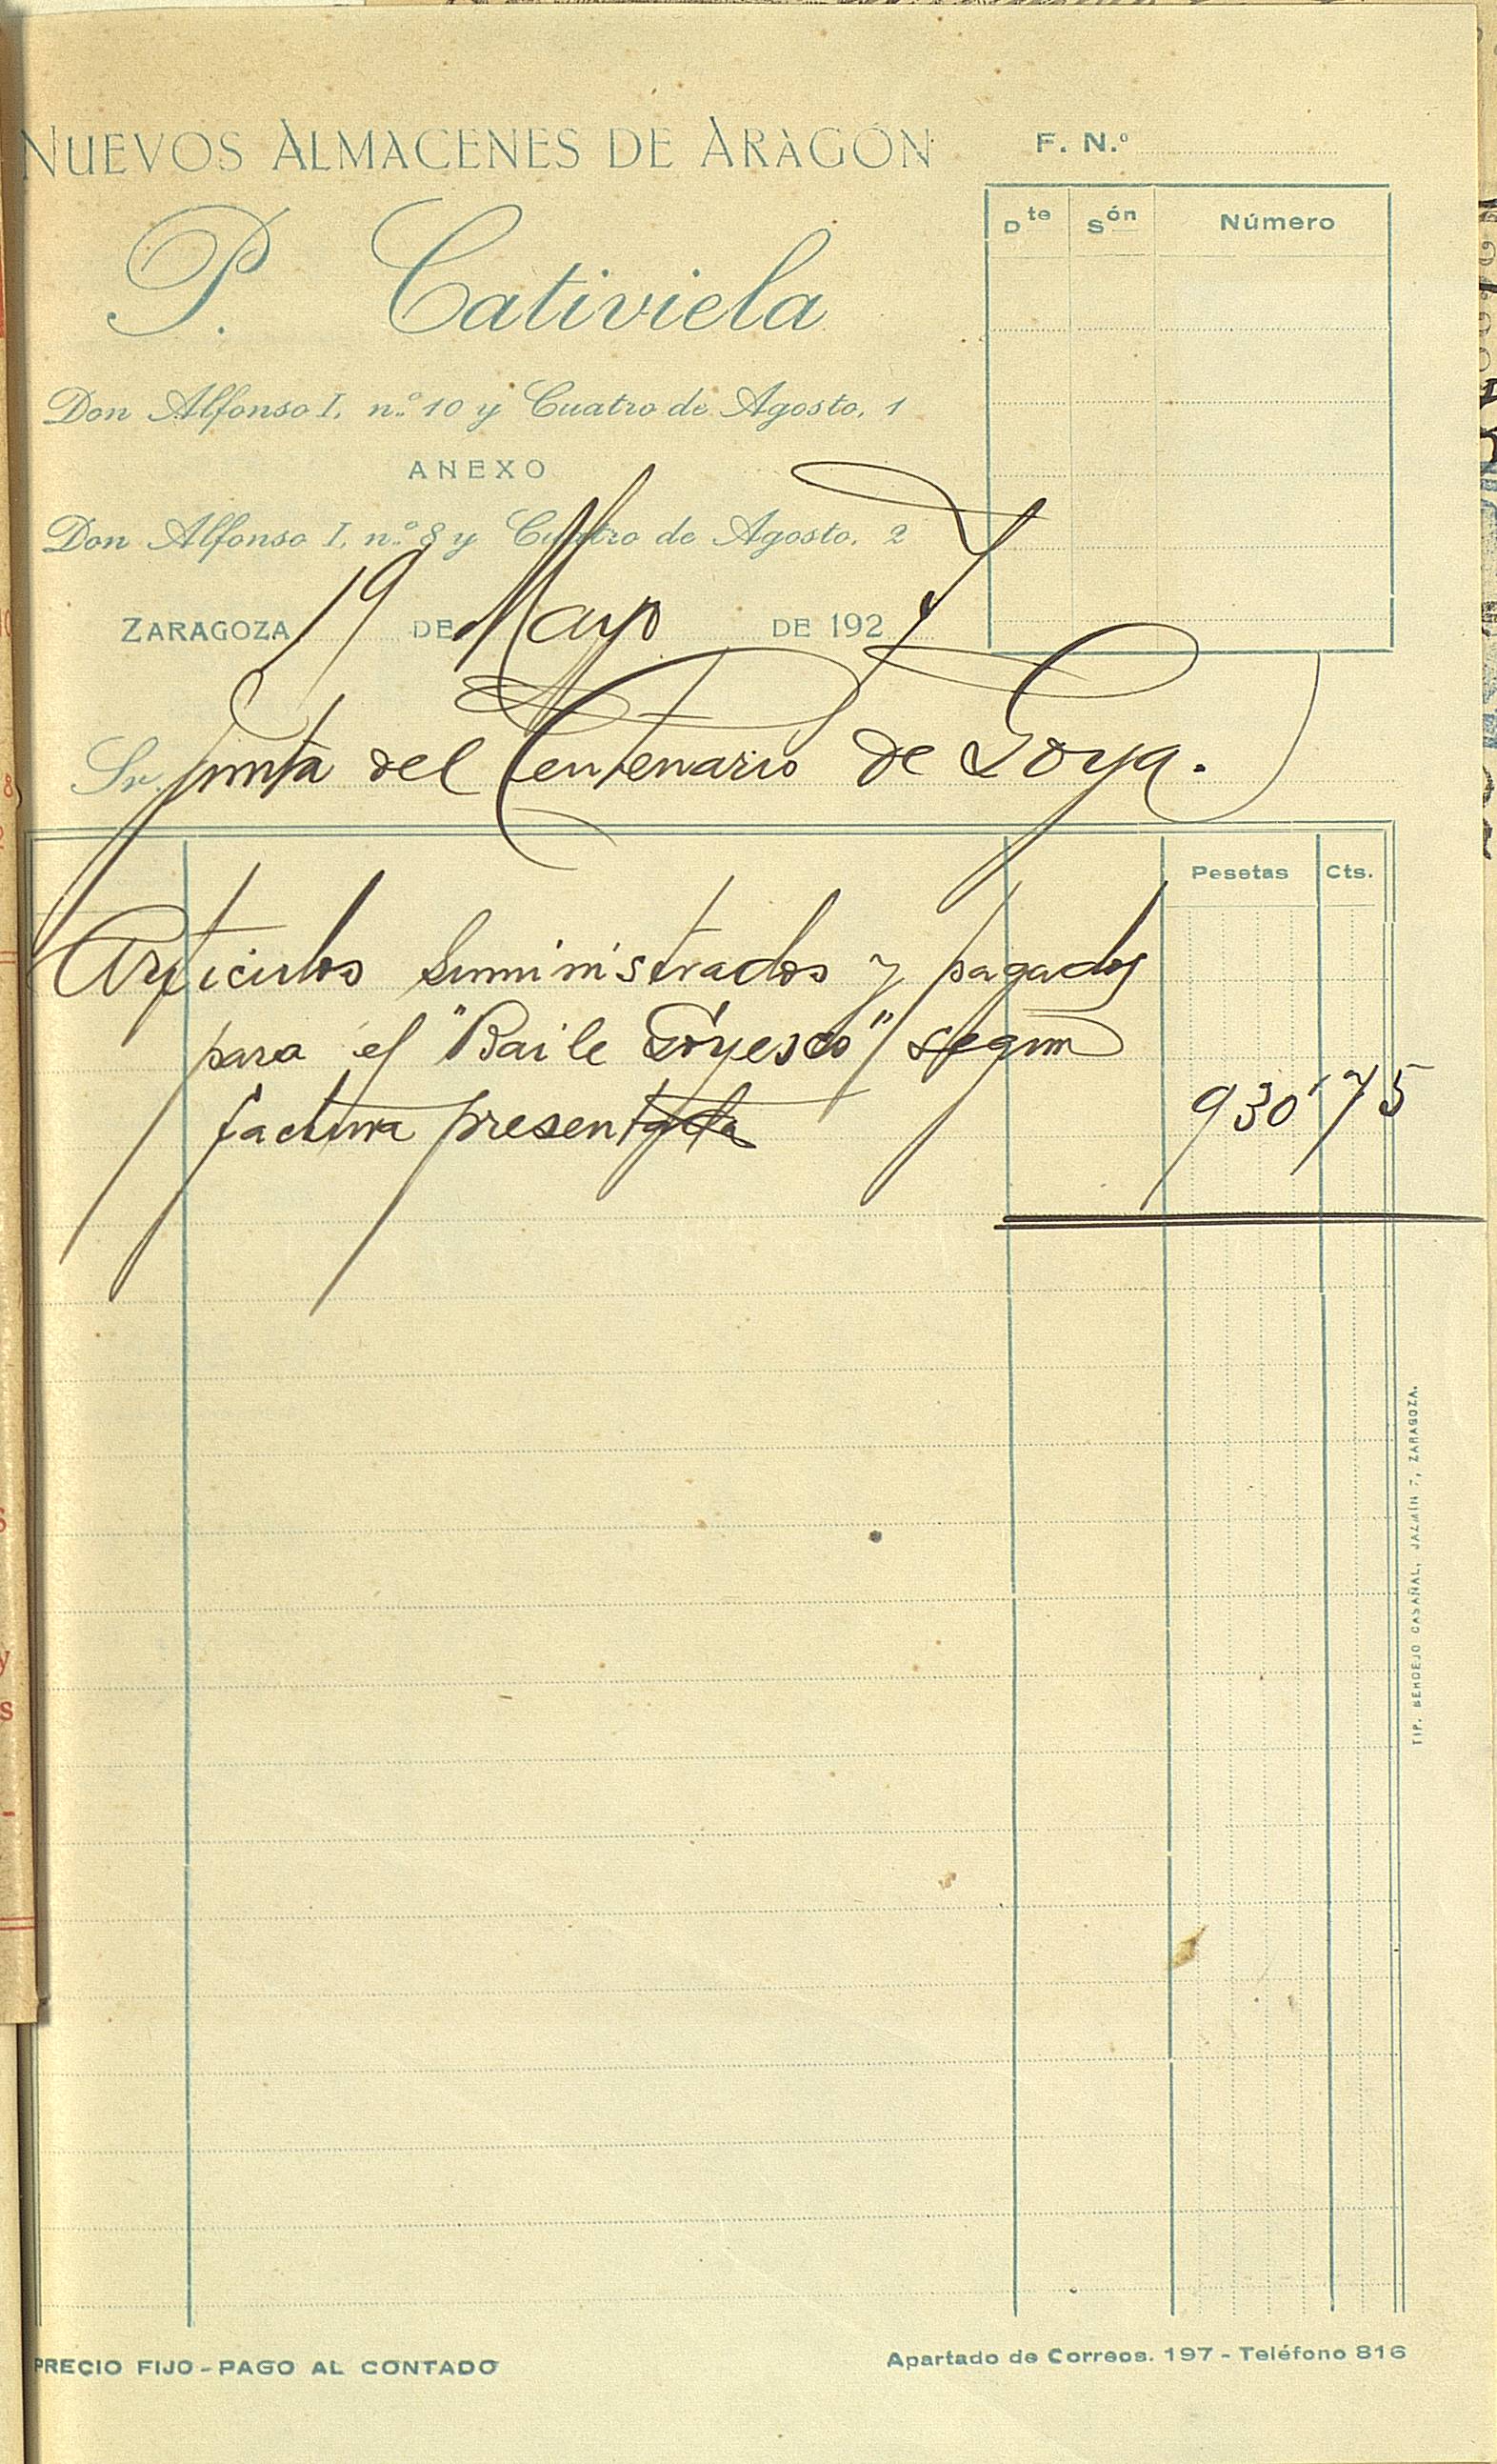 NUEVOS ALMACENES DE ARAGÓN
F. N.º
P. Cativiela
Dte Són Número
Don Alfonso I, n.º 10 y Cuatro de Agosto, 1
ANEXO
Don Alfonso I, n.º 8 y Cuatro de Agosto, 2
ZARAGOZA 19 DE Mayo DE 1927
Sr. Junta del Centenario de Goya.
Pesetas Cts.
Artículos suministrados y pagados
para el "Baile Goyesco" segun
factura presentada 930'75
TIP. BERDEJO CASAÑAL, JAZMÍN 7, ZARAGOZA.
PRECIO FIJO - PAGO AL CONTADO
Apartado de Correos. 197 - Teléfono 816